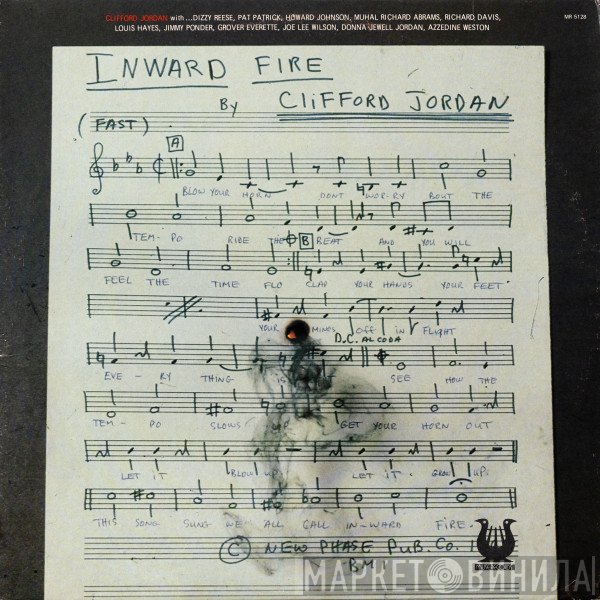 CLIFFORD JORDAN with ...DIZZY REESE, PAT PATRICK, HOWARD JOHNSON, MUHAL RICHARD ABRAMS, RICHARD DAVIS,
LOUIS HAYES, JIMMY PONDER, GROVER EVERETTE, JOE LEE WILSON, DONNA JEWELL JORDAN, AZZEDINE WESTON
MR 5128
INWARD FIRE
BY CLIFFORD JORDAN
(FAST)
A
BLOW YOUR HORN DONT WOR-RY BOUT THE
TEM-PO RIDE THE BEAT AND YOU WILL
B
FEEL THE TIME FLO CLAP YOUR HANDS YOUR FEET
YOUR MINDS OFF IN FLIGHT
D.C. AL CODA
EVE-RY THING IS SEE HOW THE
TEM-PO SLOWS UP GET YOUR HORN OUT
LET IT BLOW UP LET IT GROW UP.
THIS SONG SUNG WE ALL CALL IN-WARD FIRE.
© NEW PHASE PUB. CO.
BMI
МАРКЕТ ВИНИЛА